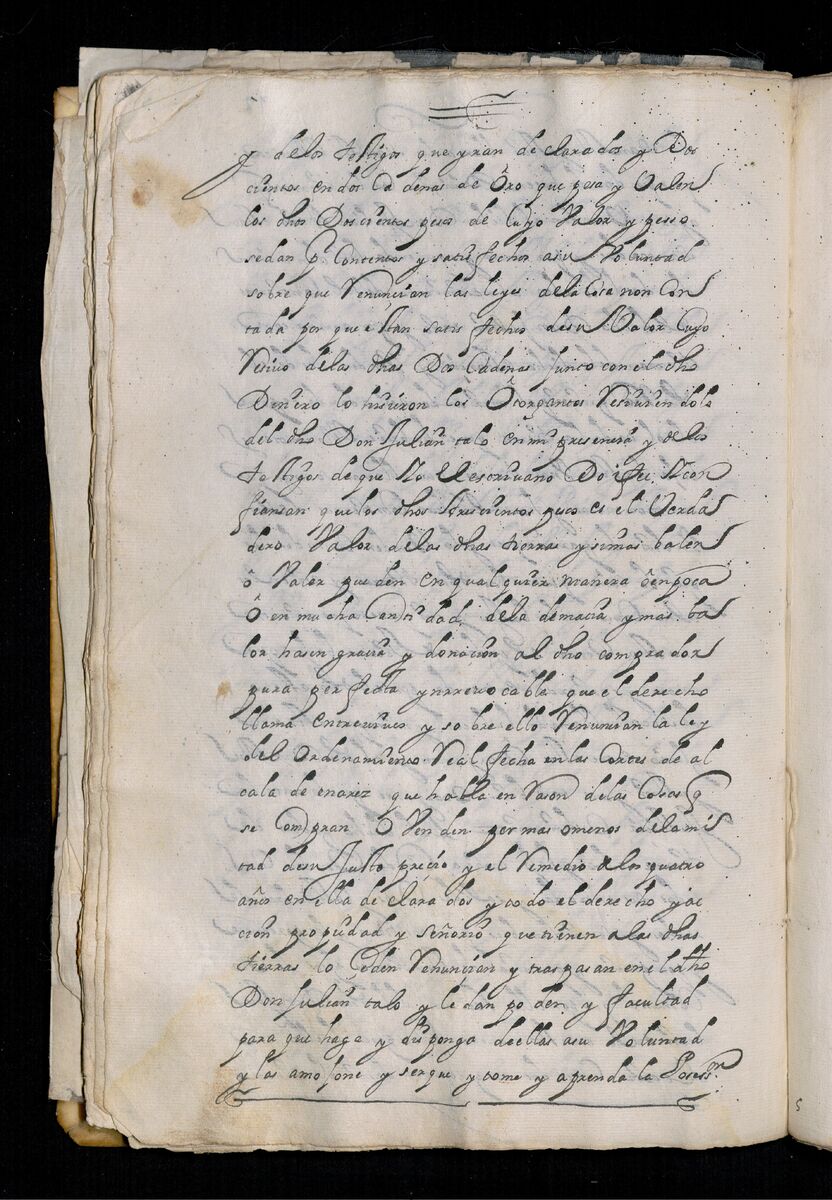 y delos testigos que yran de clarados y Dos
cientos en dos Cadenas de Oro que pesa y Valen
los dhos Doscientos pesos de Cuyo Valor y peso
sedan pr Contentos y satis fechos asu Voluntad
sobre que Renuncian las leyes dela Cosa non Con
tada por que estan satis fechos desu Valor Cuyo
Resivo delas dhas Dos Cadenas Junto con el dho
Dinero lo hisieron los Otorgantes Resiviendole
del dho Don Julian talo en mi presencia y delos
testigos de que Yo el escrivano Doi fee Y con
fiesan que los dhos trescientos pesos es el Verda
dero Valor delas dhas tierras y si mas balen
ô Valer pueden en qual quier manera ô en poca
Ô en mucha Cantidad dela demacia y mas ba
lor hasen gracia y donacion al dho comprador
pura per fecta ynrrevocable que el derecho
llama entrevivos y sobre ello Renuncian la ley
del Ordenamiento Real fecha en las Cortes de al
cala de enarez que habla en Rason delas Cosas q
se Compran O Venden por mas omenos dela mi
tad desu Justo precio y el Remedio alos quatro
años en ella de clarados y todo el derecho y ac
cion propiedad y señorio que tienen a las dhas
tierras lo Ceden Renuncian y traspasan en el dho
Don Julian talo y le dan poder y facultad
para que haga y disponga deellas asu Voluntad
y las amojone y serque y tome y aprenda la Posessn
5